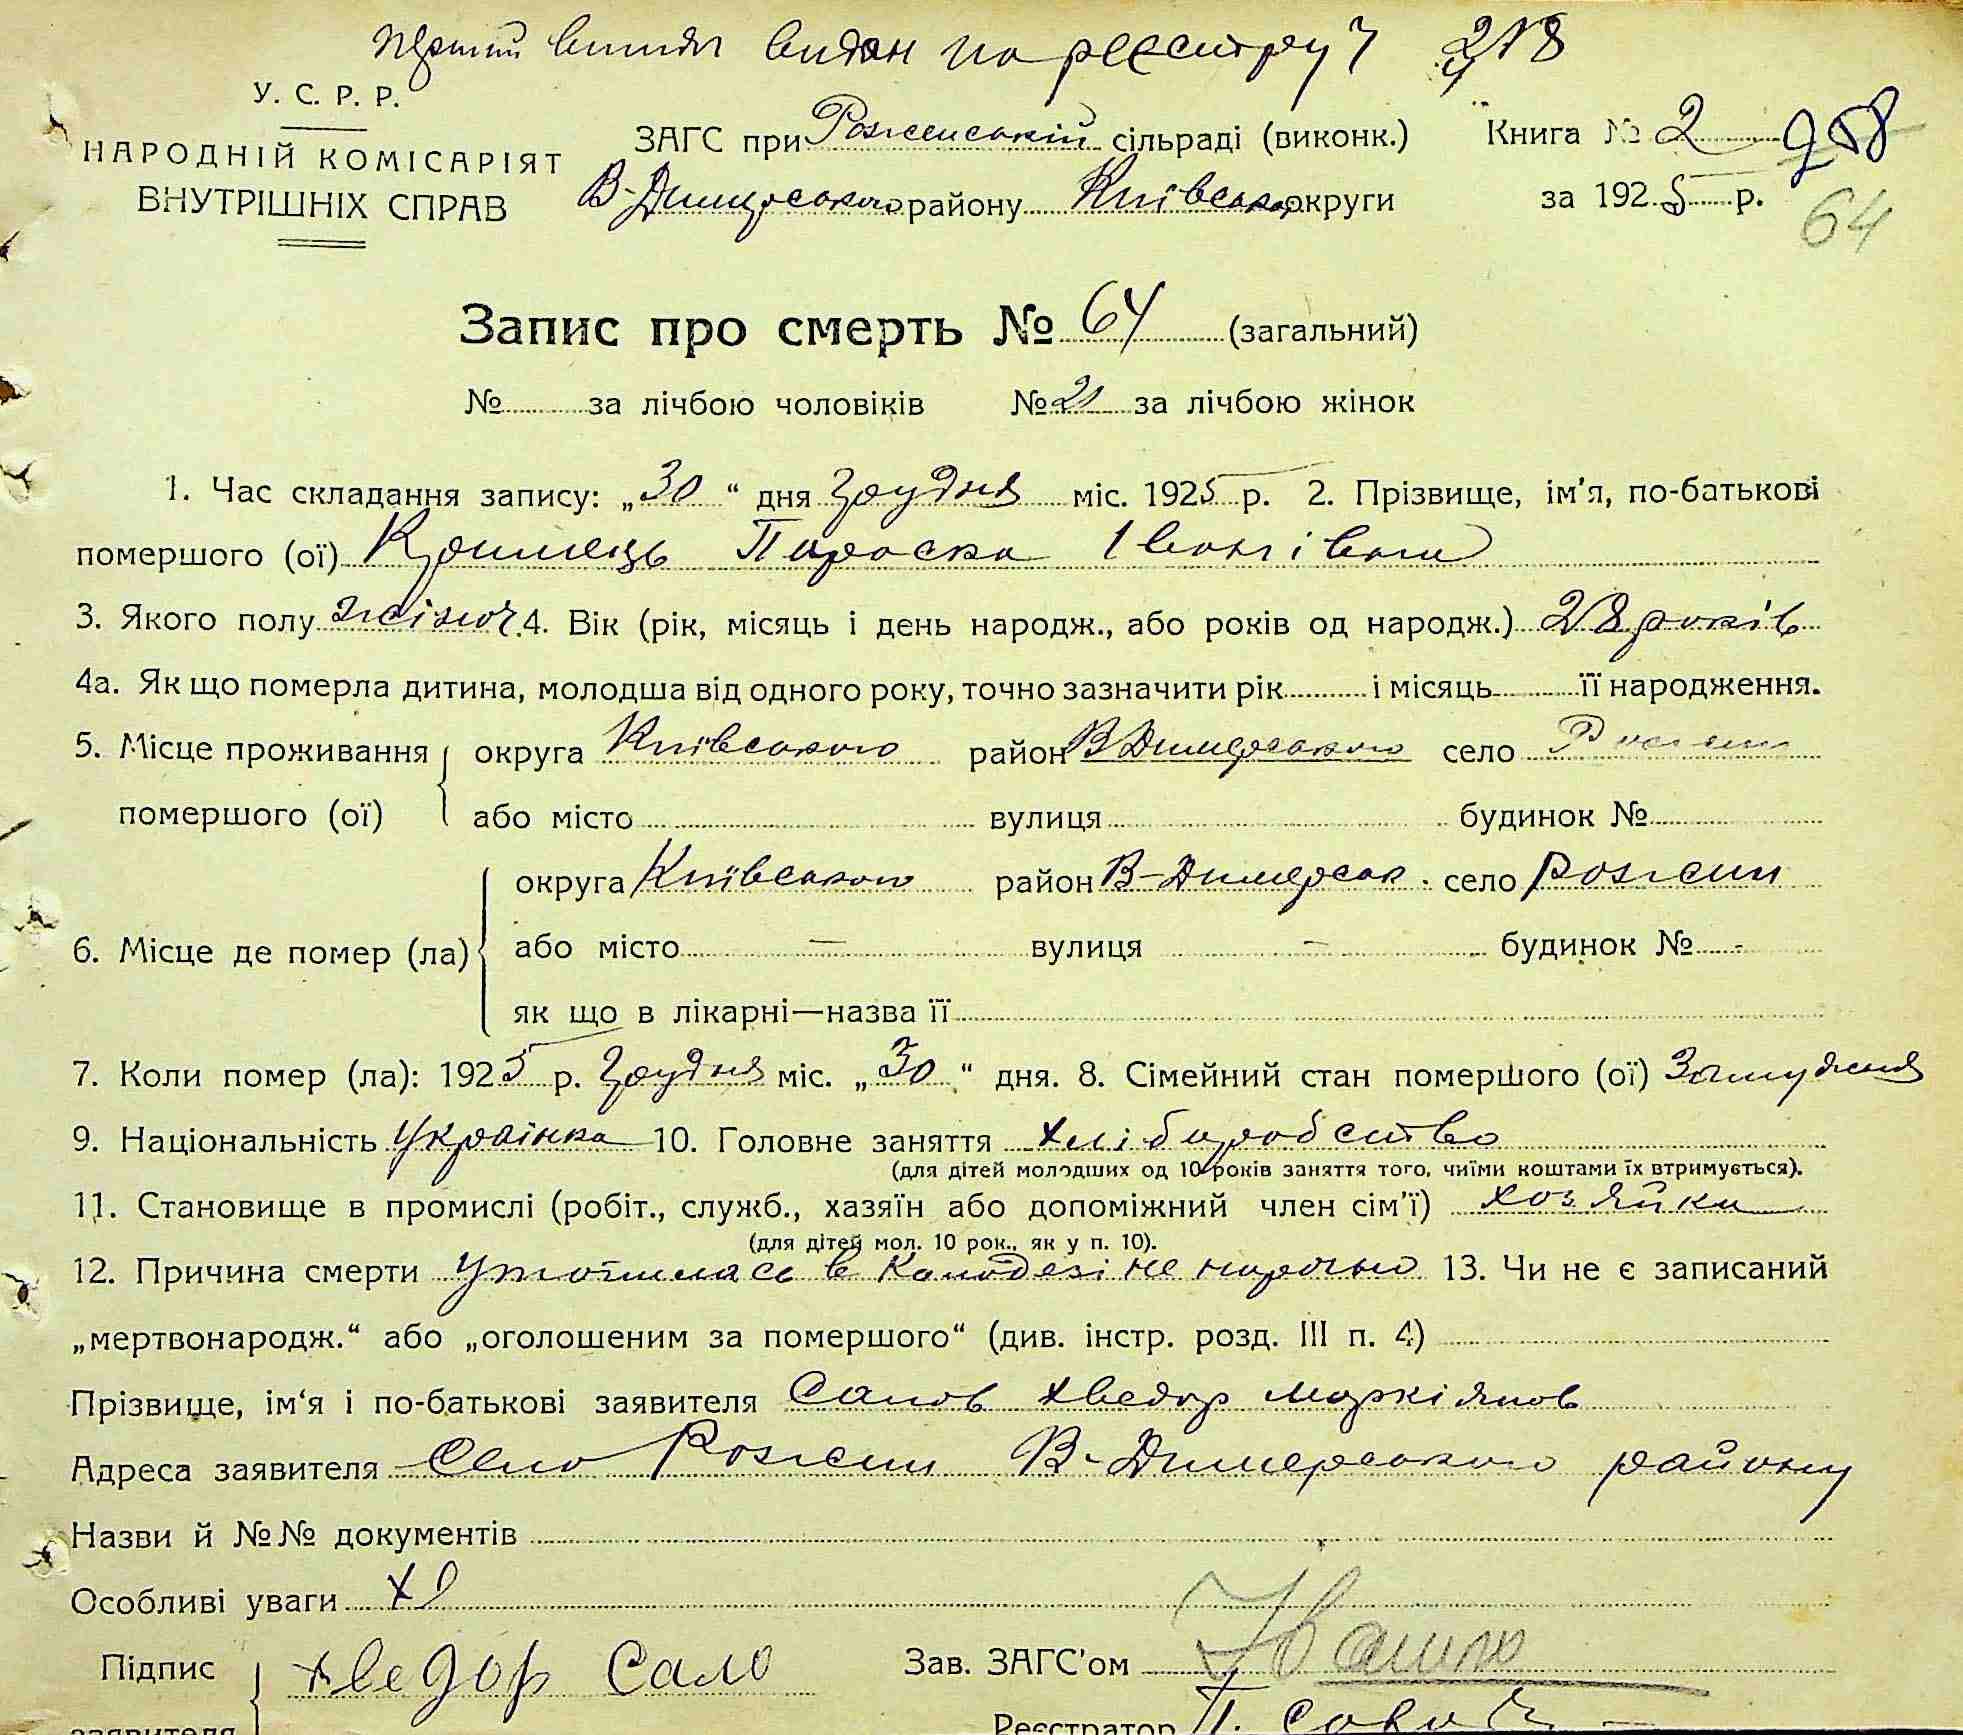 Перший випис видан по реєстру Ч 218
У. С. Р. Р.
НАРОДНІЙ КОМІСАРІЯТ
ВНУТРІШНІХ СПРАВ
ЗАГС при Роженській сільраді (виконк.)
В-Димерського району Київської округи
Книга № 2 258
за 1925 р. 64
Запис про смерть № 64 (загальний)
№ за лічбою чоловіків № 21 за лічбою жінок
1. Час складання запису: „30“ дня Грудня міс. 1925 р. 2. Прізвище, ім'я, по-батькові
помершого (ої) Параска Іванівна
3. Якого полу жіноч. 4. Вік (рік, місяць і день народж., або років од народж.) 28 років
4а. Як що померла дитина, молодша від одного року, точно зазначити рік і місяць її народження.
5. Місце проживання округа Київського район В Димерського село Рожни
помершого (ої) або місто вулиця будинок №
округа Київського район В-Димерськ. село Рожни
6. Місце де помер (ла) або місто — вулиця — будинок № -
як що в лікарні—назва її
7. Коли помер (ла): 1925 р. Грудня міс. „30“ дня. 8. Сімейний стан помершого (ої) Замужня
9. Національність Українка 10. Головне заняття хліборобство
(для дітей молодших од 10 років заняття того, чиїми коштами їх втримується).
11. Становище в промислі (робіт., служб., хазяїн або допоміжний член сім'ї) хозяйка
(для дітей мол. 10 рок., як у п. 10).
12. Причина смерти утопилась в колодезі не нарочно 13. Чи не є записаний
„мертвонародж.“ або „оголошеним за помершого“ (див. інстр. розд. III п. 4)
Прізвище, ім'я і по-батькові заявителя Салов Хведор Маркіянов
Адреса заявителя Село Рожни В-Димерського району
Назви й №№ документів
Особливі уваги
Підпис Хведор Сало Зав. ЗАГС'ом
заявителя Реєстратор П.